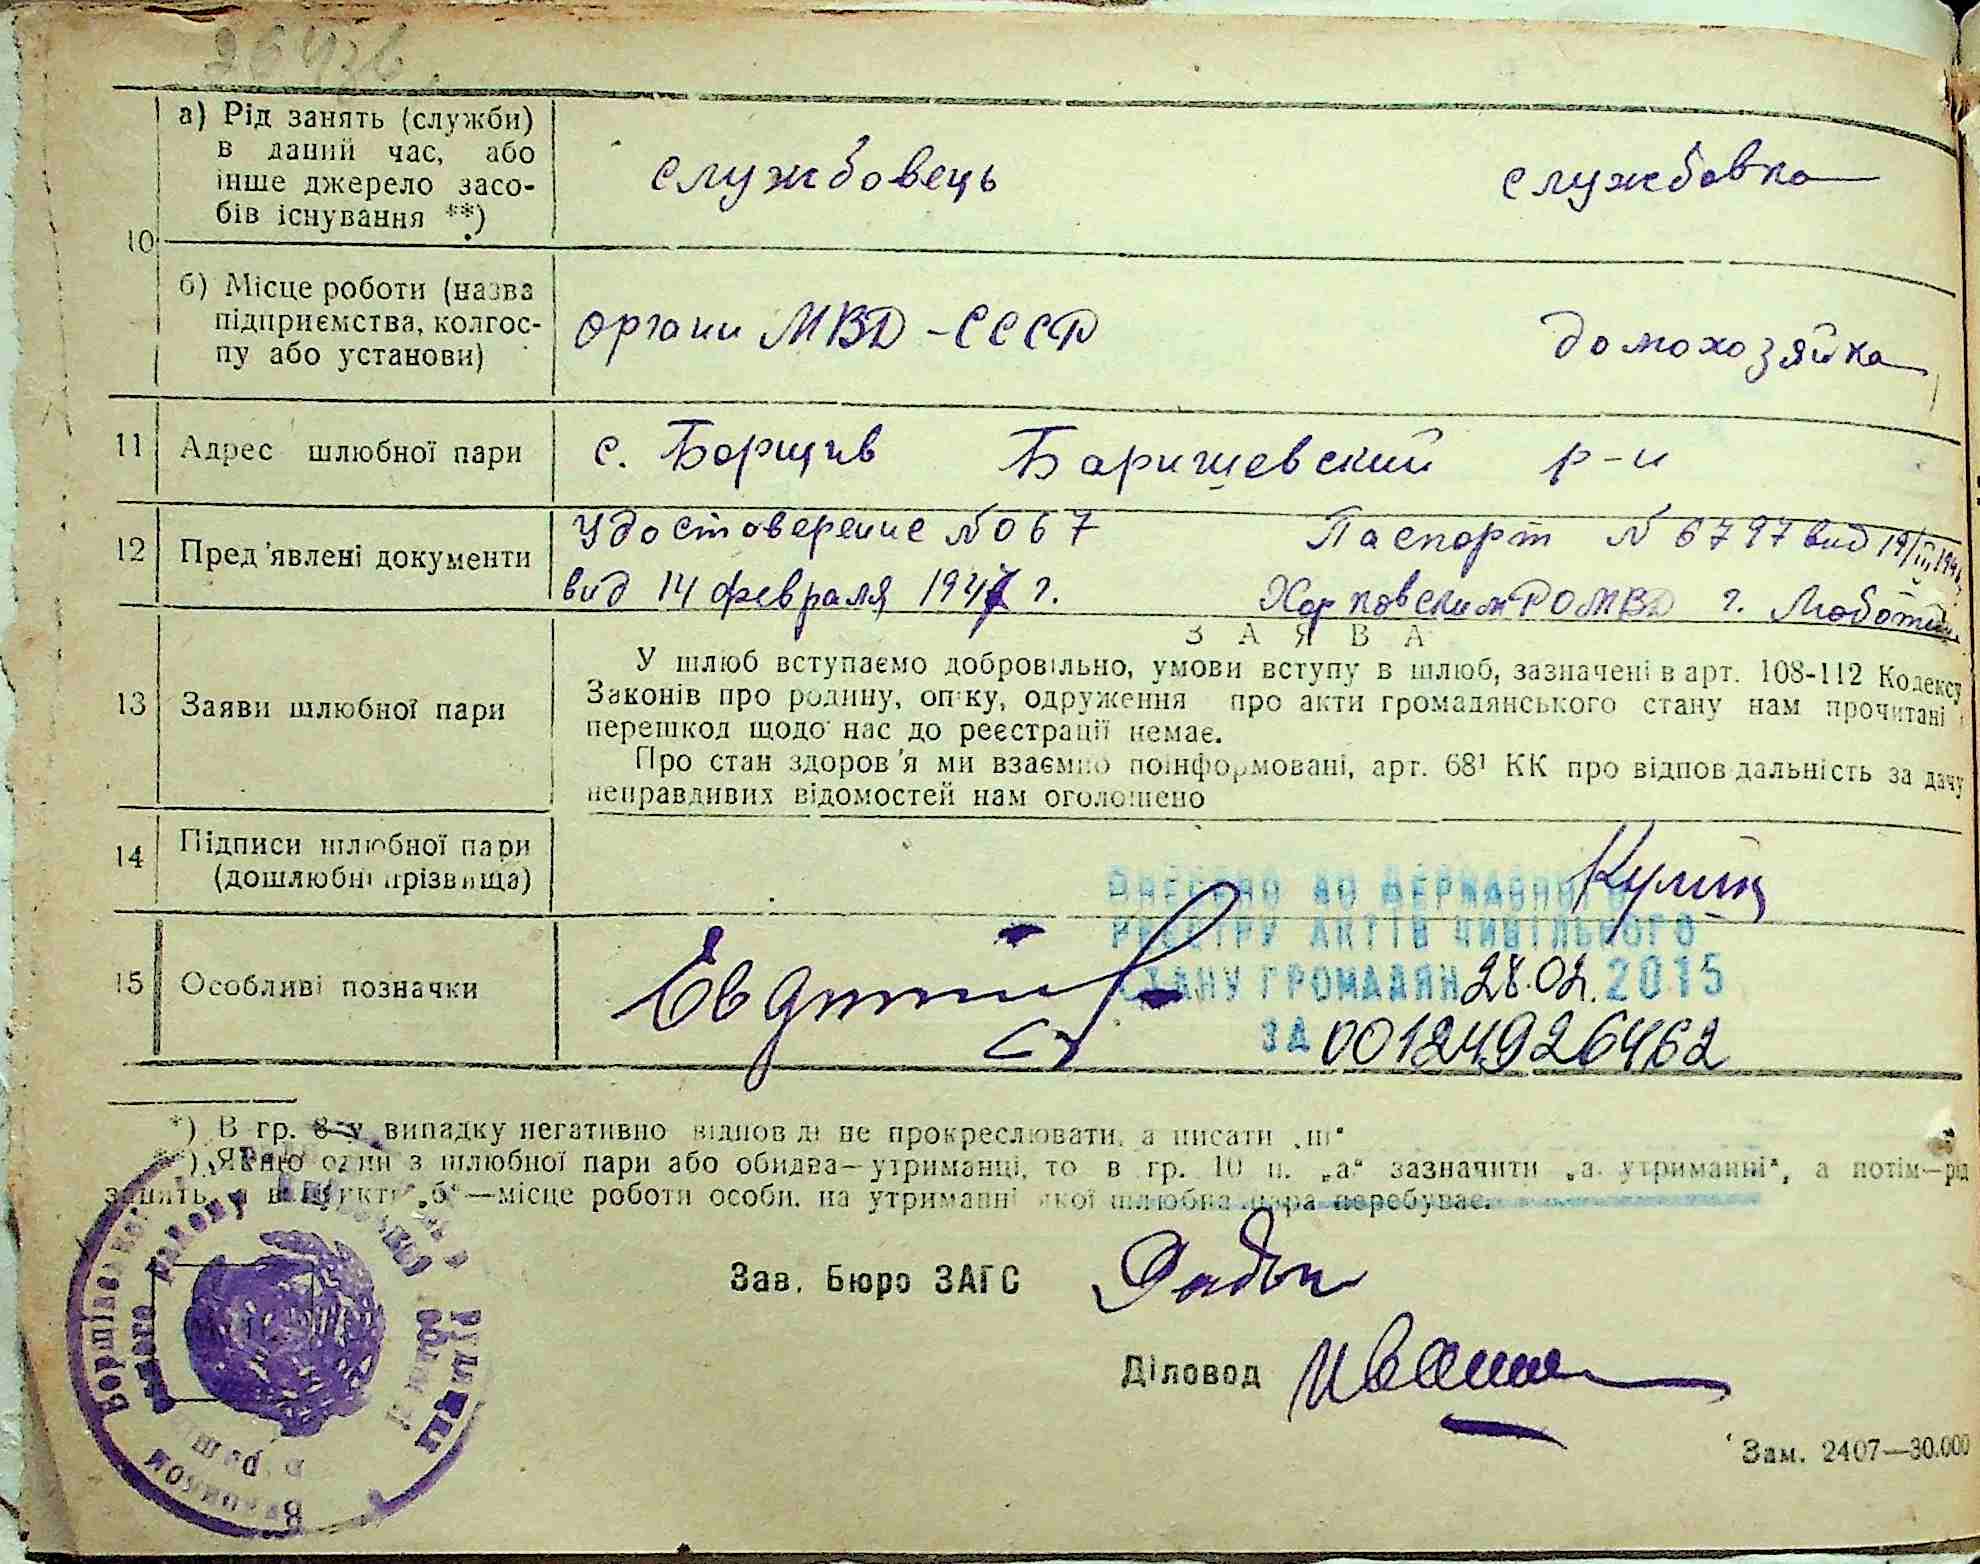 а) Рід занять (служби)
в даний час, або
інше джерело засо-
бів існування **)
службовець службовка
10
б) Місце роботи (назва
підприємства, колгос-
пу або установи)
органи МВД-СССР домохозяйка
11 Адрес шлюбної пари с. Борщив Баришевский р-н
12 Пред'явлені документи
Удостоверение №067 Паспорт № 6797 вид 19/III
вид 14 февраля 1947 г. РОМВД г.
ЗАЯВА
13 Заяви шлюбної пари
У шлюб вступаємо добровільно, умови вступу в шлюб, зазначені в арт. 108-112 Кодексу
Законів про родину, опіку, одруження про акти громадянського стану нам прочитані
перешкод щодо нас до реєстрації немає.
Про стан здоров'я ми взаємно поінформовані, арт. 68¹ КК про відповідальність за дачу
неправдивих відомостей нам оголошено
14 Підписи шлюбної пари
(дошлюбні прізвища)
15 Особливі позначки
ВНЕСЕНО ДО ДЕРЖАВНОГО
РЕЄСТРУ АКТІВ ЦИВІЛЬНОГО
СТАНУ ГРОМАДЯН 28.02.2015
ЗА 00124926462
*) В гр. 8-у випадку негативно відповіді не прокреслювати, а писати „ні“
**) Якщо один з шлюбної пари або обидва—утриманці, то в гр. 10 п. „а“ зазначити „а утриманні“, а потім—рід
занять, а в пункті „б“—місце роботи особи, на утриманні якої шлюбна пара перебуває.
Зав. Бюро ЗАГС
Діловод
Зам. 2407—30.000